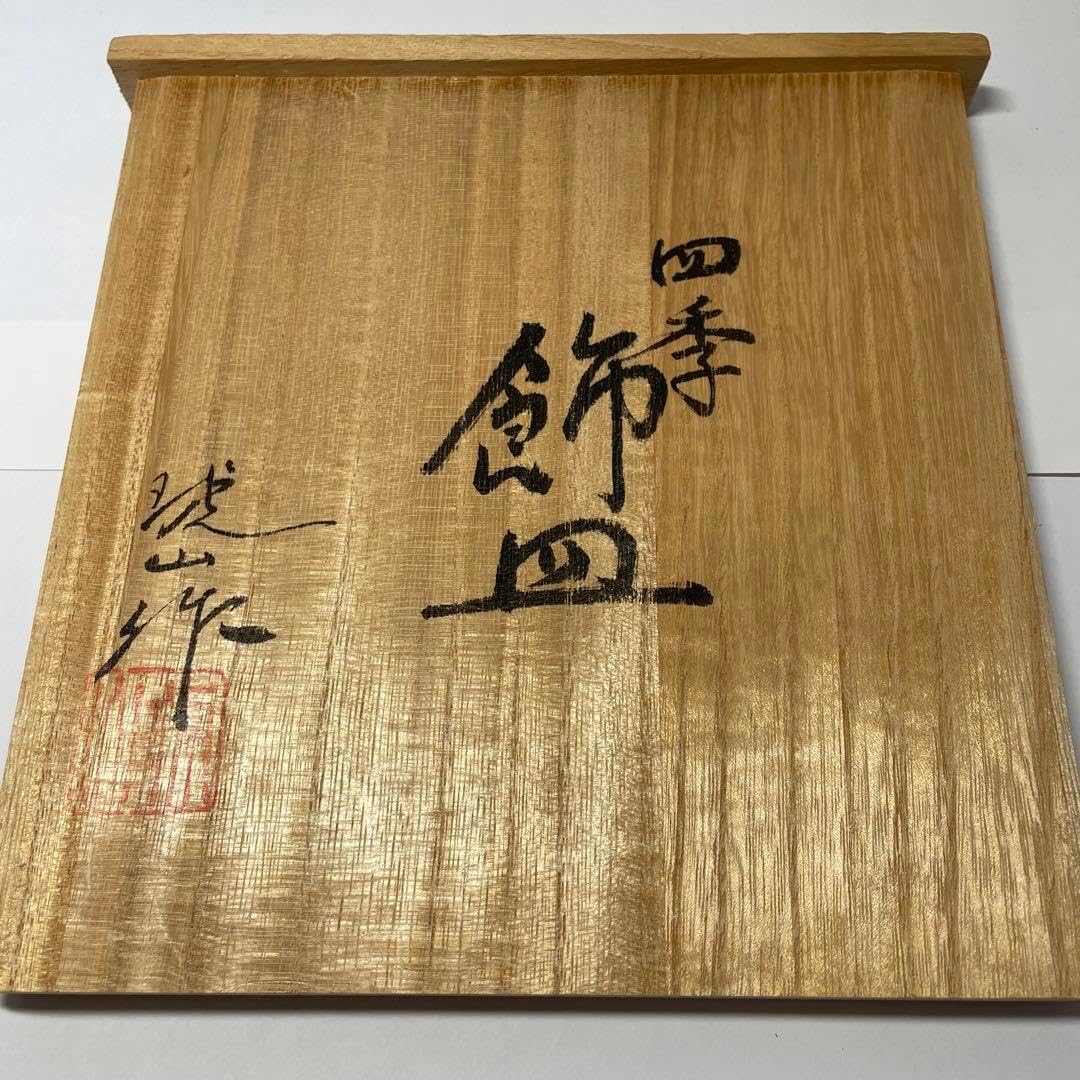 四季
飾皿
琥山作